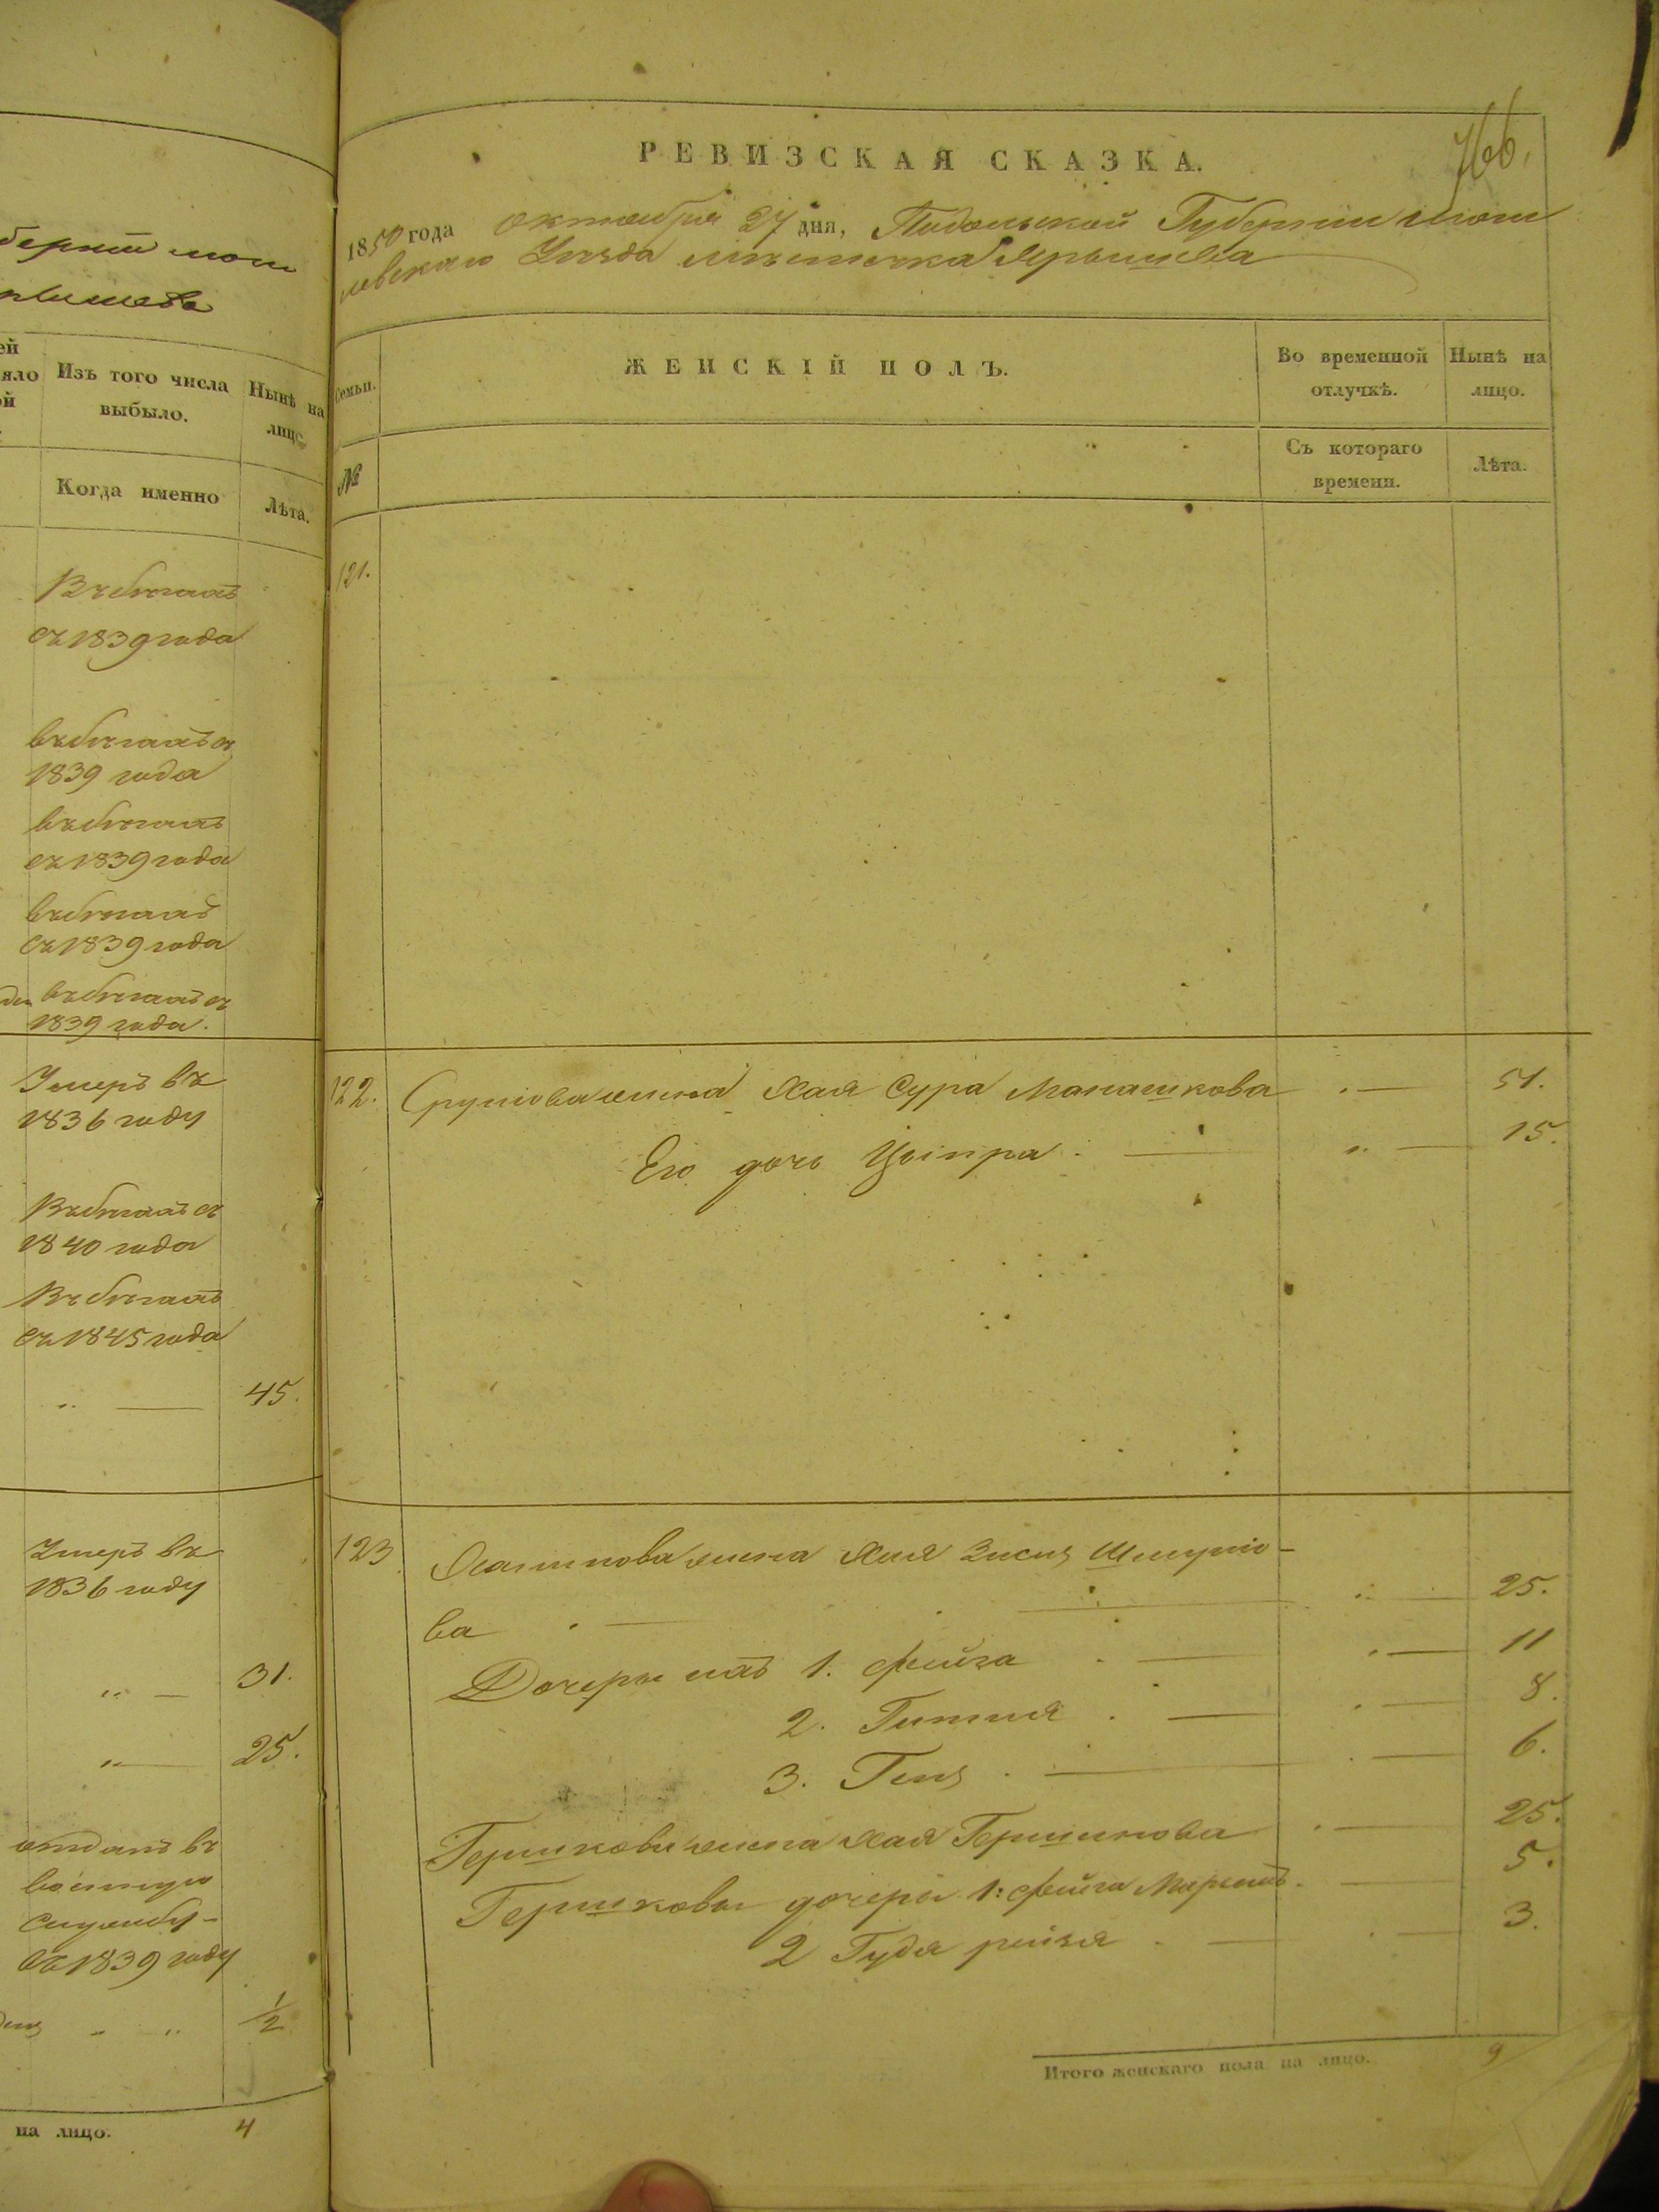 берніи мог
ышева
ей
яло
ой
Изъ того числа
выбыло.
Нынѣ на
лицо.
Когда именно
Лѣта.
Въ бѣгахъ
съ 1839 года
въ бѣгахъ съ
1839 года
въ бѣгахъ
съ 1839 года
въ бѣгахъ
съ 1839 года
въ бѣгахъ съ
1839 года.
Умеръ въ
1836 году
Въ бѣгахъ съ
1840 года
Въ бѣгахъ
съ 1845 года
45.
Умеръ въ
1836 году
31.
25.
отданъ въ
военную
службу
въ 1839 году
1/2
на лицо.
4
РЕВИЗСКАЯ СКАЗКА.
766.
1850 года октября 27 дня, Подольской Губерніи Моги
левскаго Уѣзда мѣстечка Ярышева
Семьи.
ЖЕНСКІЙ ПОЛЪ.
Во временной
отлучкѣ.
Нынѣ на
лицо.
№
Съ котораго
времени.
Лѣта.
121.
122. Сруповажена Хая Сура Манашкова 51.
Его дочь Ципра 15.
123 жена Хая Зися Шмулio-
ва 25.
Дочеры ихъ 1. Фейга 11
2. Гитля 8.
3. Геня 6.
Гершкови жена Хая Гершкова 25.
Гершковы дочеры 1: Фейга Марьямъ 5.
2 Гудя рейзя 3.
Итого женскаго пола на лицо. 9